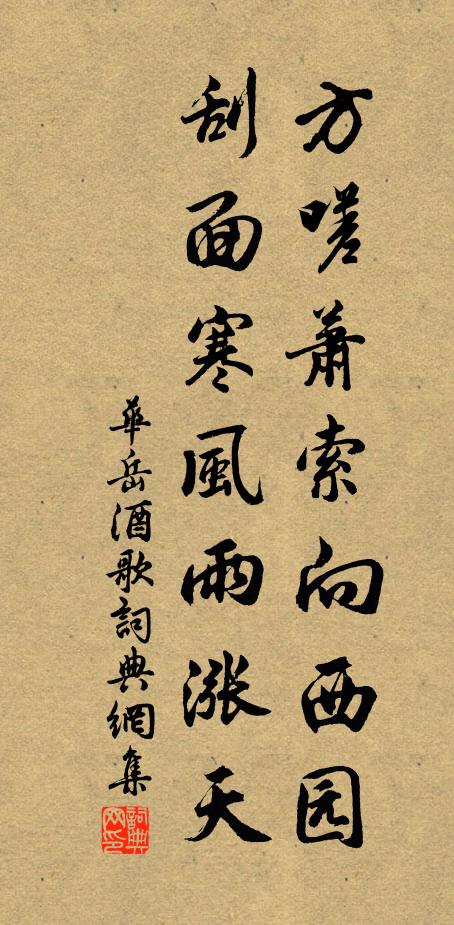 方嗟萧索向西园
刮面寒風雨漲天
華岳酒歌詞典網集
詞典网印